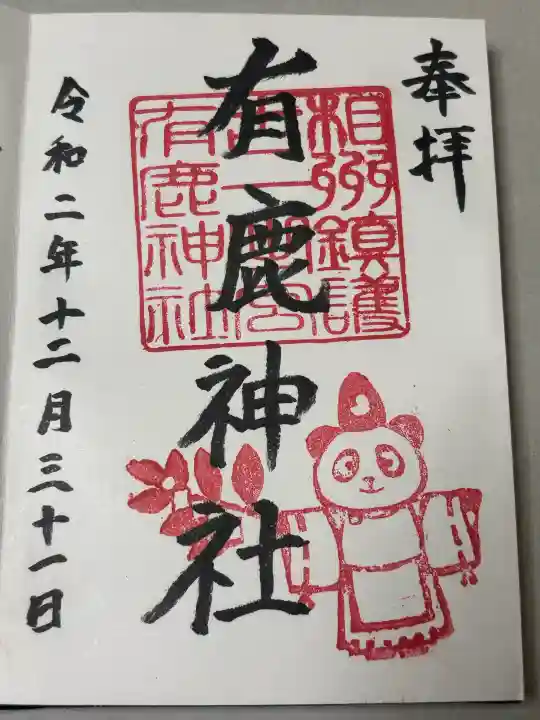 奉拝
有鹿神社
相州鎮護
有鹿神社
令和二年十二月三十一日